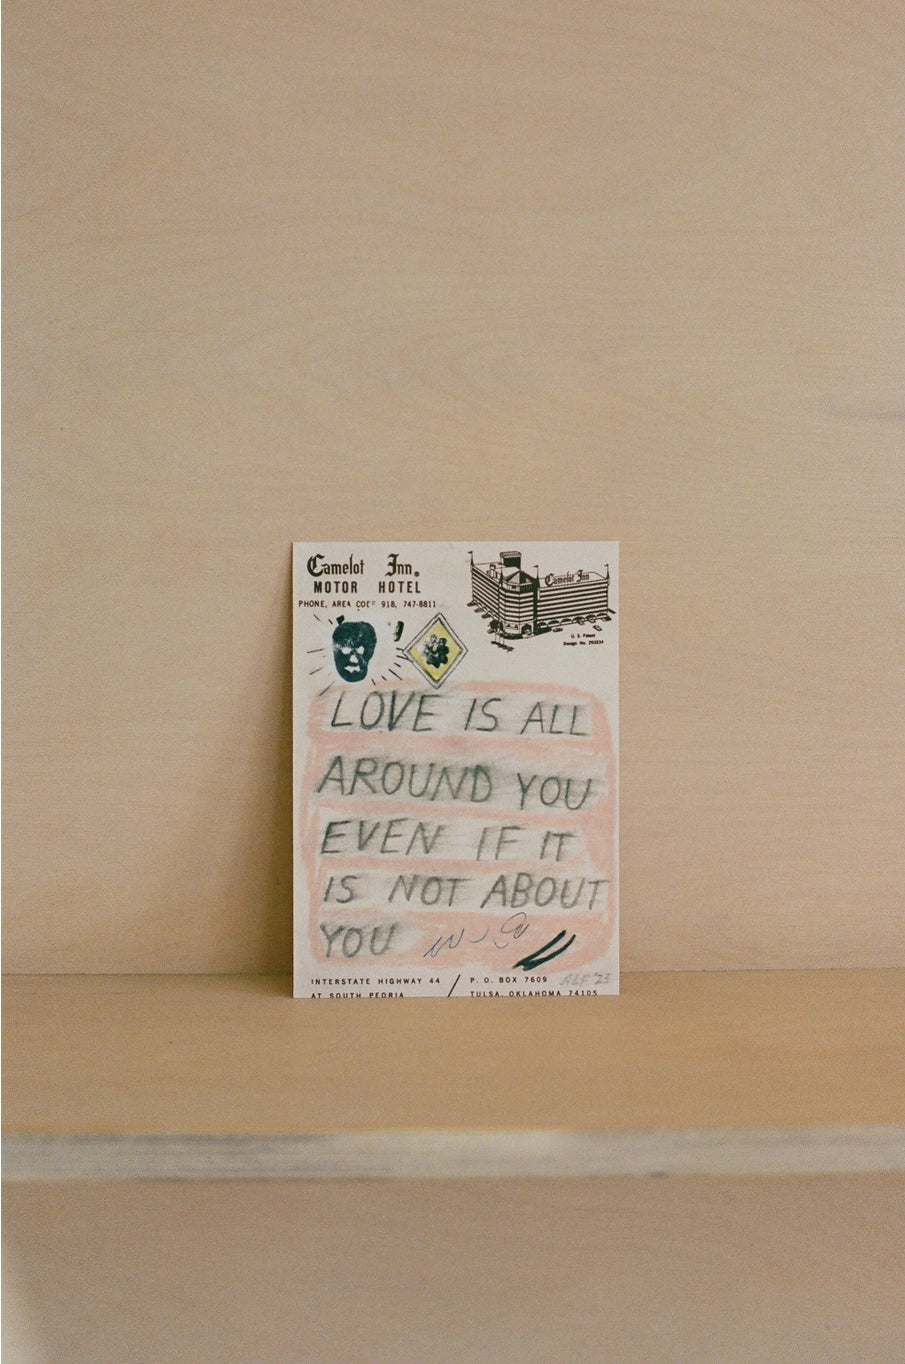 Camelot Inn.
MOTOR HOTEL
PHONE, AREA CODE 918, 747-8811
Camelot Inn
U. S. Patent
Design No. 203534
LOVE IS ALL
AROUND YOU
EVEN IF IT
IS NOT ABOUT
YOU
INTERSTATE HIGHWAY 44 / P. O. BOX 7609
AT SOUTH PEORIA TULSA, OKLAHOMA 74105